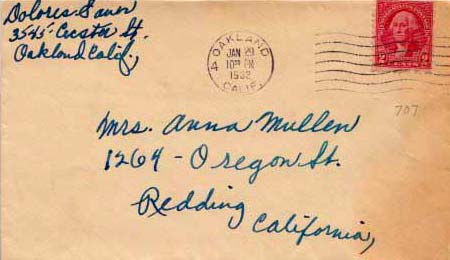 Dolores Sauer
3545 - Custer St.
Oakland Calif,
OAKLAND
JAN 29
10 PM
1932
CALIF.
4
2 2
707
Mrs. Anna Mullen
1264 - Oregon St.
Redding
California,